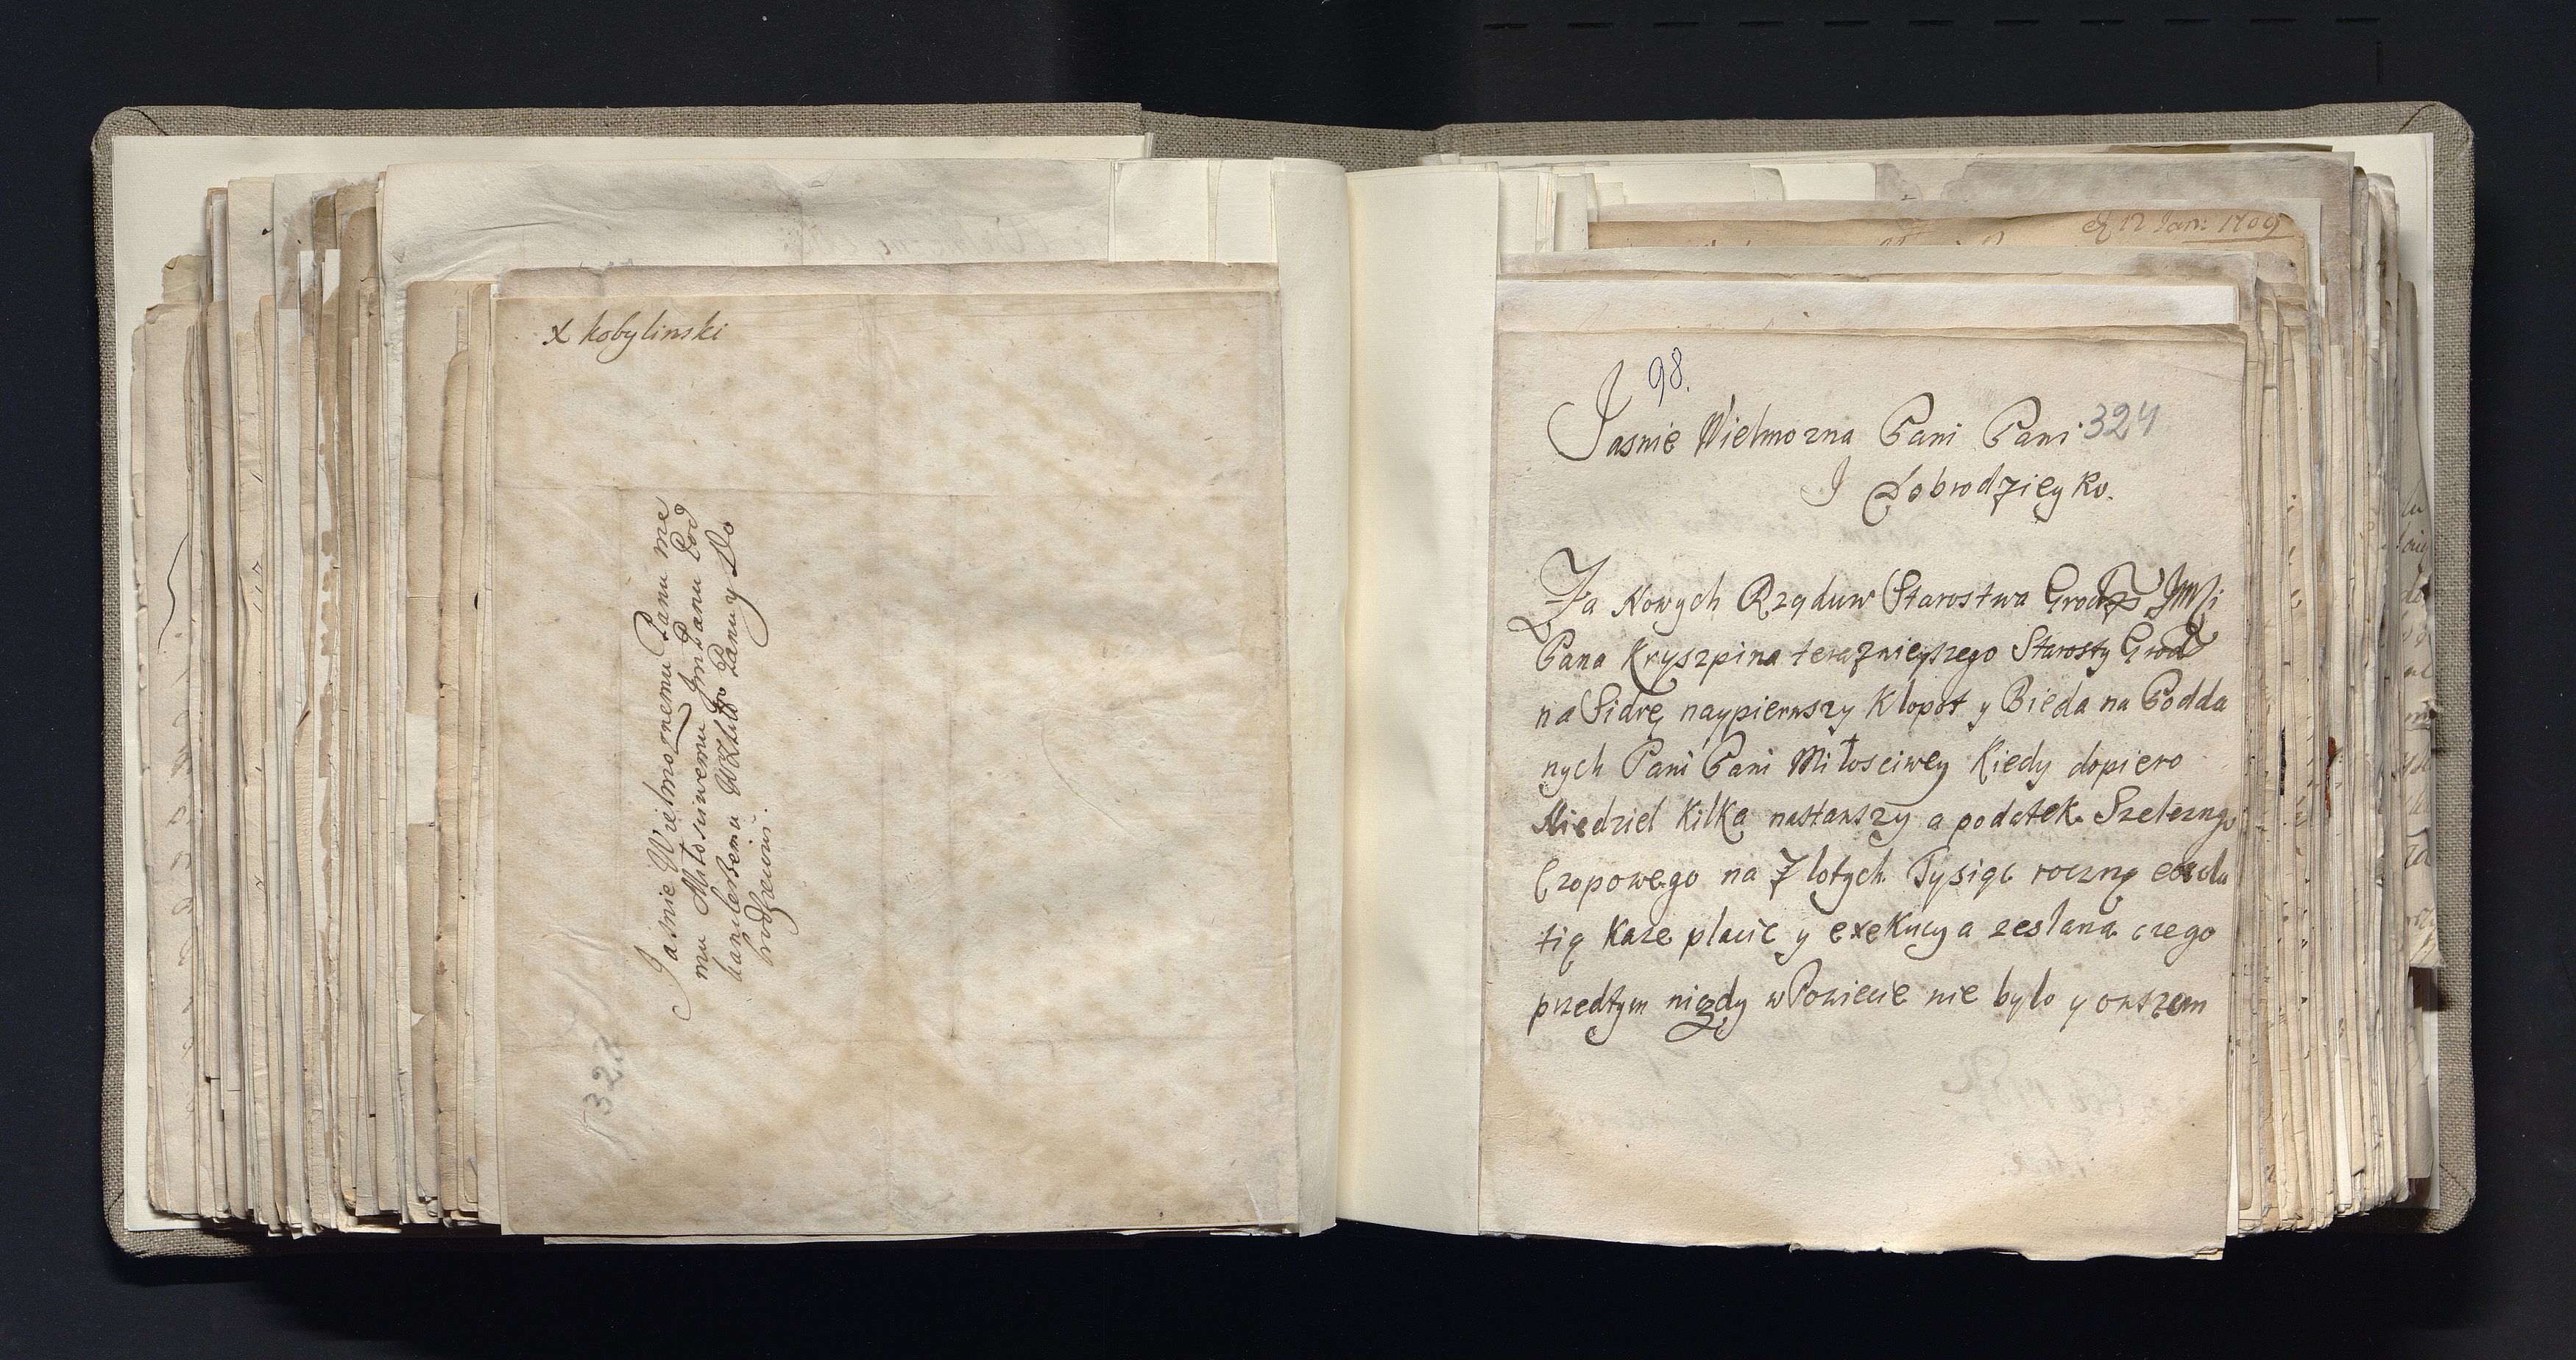 x kobylinski
Jasnie Wielmoznemu Panu me
mu Miłosciwemu Jm Panu Pod
kanclerzemu WXLitt Panu y Do
brodzeiowi.
322
98.
324
Jasnie Wielmozna Pani Pani
I Dobrodzieyko.
Za Nowych Rząduw Starostwa Jmsci
Pana Kryszpina teraznieyszego Starosty Grod
na Sidrę naypierwszy Klopot y Bieda na Podda
nych Pani Pani Miłosciwey Kiedy dopiero
Niedziel Kilka nastawszy a podatek Szelezng
Czopowego na Zlotych Tysiąc roczną
tią Kaze placic y exekucya zeslana czego
przedtym nigdy w Powiecie nie bylo y owszem
12 Jan: 1709